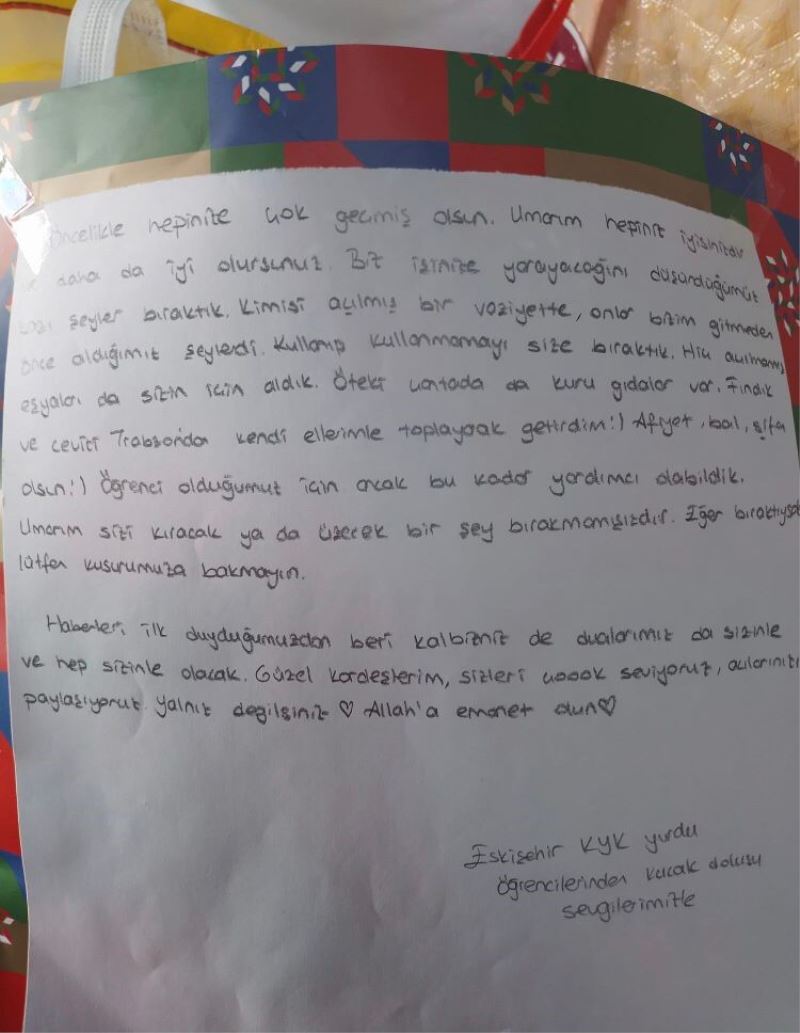 Öncelikle hepinize çok geçmiş olsun. Umarım hepiniz iyisinizdir
ve daha da iyi olursunuz. Biz işinize yarayacağını düşündüğümüz
bazı şeyler bıraktık. Kimisi açılmış bir vaziyette, onlar bizim gitmeden
önce aldığımız şeylerdi. Kullanıp kullanmamayı size bıraktık. Hiç açılmamış
eşyaları da sizin için aldık. Öteki çantada da kuru gıdalar var. Fındık
ve cevizi Trabzondan kendi ellerimle toplayarak getirdim:) Afiyet, bal, şifa
olsun:) Öğrenci olduğumuz için ancak bu kadar yardımcı olabildik.
Umarım sizi kıracak ya da üzecek bir şey bırakmamışızdır. Eğer bıraktıysak
lütfen kusurumuza bakmayın.
Haberleri ilk duyduğumuzdan beri kalbimiz de dualarımız da sizinle
ve hep sizinle olacak. Güzel kardeşlerim, sizleri çoook seviyoruz, acılarınızı
paylaşıyoruz. Yalnız değilsiniz ♡ Allah'a emanet olun♡
Eskişehir KYK yurdu
öğrencilerinden kucak dolusu
sevgilerimizle